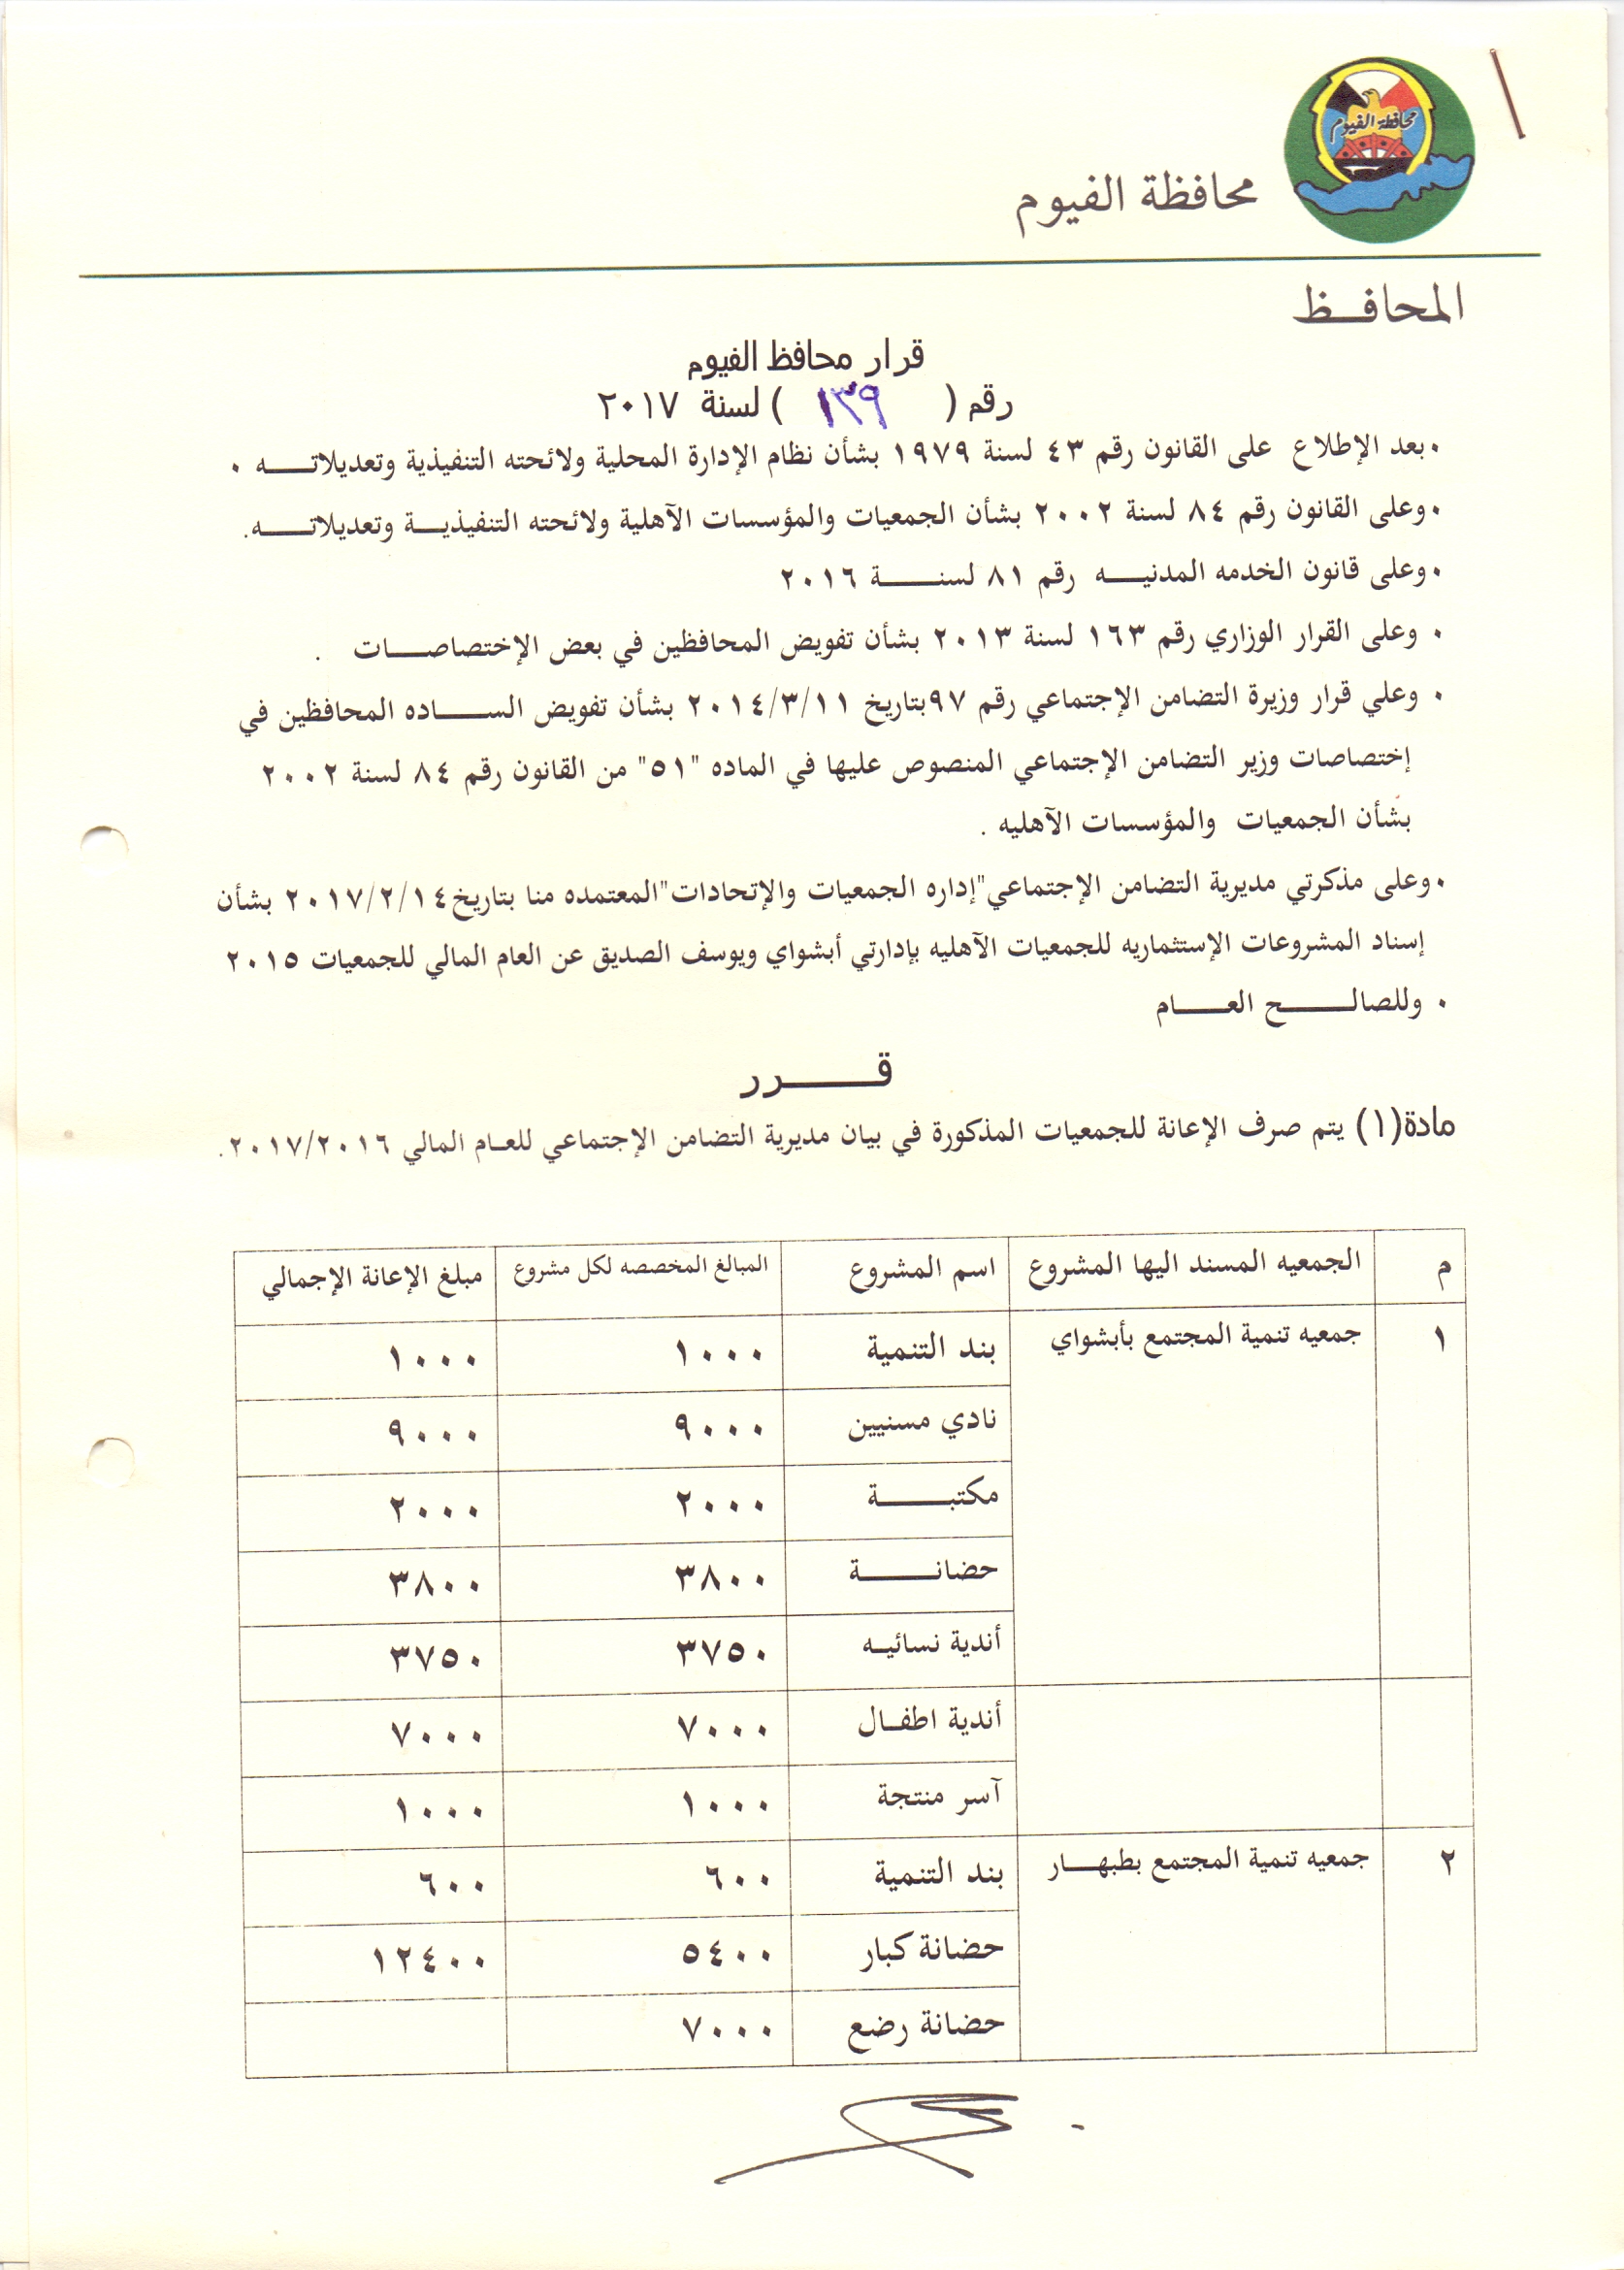 محافظة الفيوم
محافظة الفيوم
المحافــظ
قرار محافظ الفيوم
رقم ( ١٣٩ ) لسنة ٢٠١٧
• بعد الإطلاع على القانون رقم ٤٣ لسنة ١٩٧٩ بشأن نظام الإدارة المحلية ولائحته التنفيذية وتعديلاتـــه .
• وعلى القانون رقم ٨٤ لسنة ٢٠٠٢ بشأن الجمعيات والمؤسسات الآهلية ولائحته التنفيذيــة وتعديلاتـــه.
• وعلى قانون الخدمه المدنيــه رقم ٨١ لسنـــــة ٢٠١٦
• وعلى القرار الوزاري رقم ١٦٣ لسنة ٢٠١٣ بشأن تفويض المحافظين في بعض الإختصاصــات .
• وعلي قرار وزيرة التضامن الإجتماعي رقم ٩٧بتاريخ ٢٠١٤/٣/١١ بشأن تفويض الســـاده المحافظين في
إختصاصات وزير التضامن الإجتماعي المنصوص عليها في الماده "٥١" من القانون رقم ٨٤ لسنة ٢٠٠٢
بشأن الجمعيات والمؤسسات الآهليه .
• وعلى مذكرتي مديرية التضامن الإجتماعي"إداره الجمعيات والإتحادات"المعتمده منا بتاريخ٢٠١٧/٢/١٤ بشأن
إسناد المشروعات الإستثماريه للجمعيات الآهليه بإدارتي أبشواي ويوسف الصديق عن العام المالي للجمعيات ٢٠١٥
• وللصالـــــح العــــام
قـــــرر
مادة(١) يتم صرف الإعانة للجمعيات المذكورة في بيان مديرية التضامن الإجتماعي للعـام المالي ٢٠١٧/٢٠١٦.
م الجمعيه المسند اليها المشروع اسم المشروع المبالغ المخصصه لكل مشروع مبلغ الإعانة الإجمالي
١ جمعيه تنمية المجتمع بأبشواي بند التنمية ١٠٠٠ ١٠٠٠
نادي مسنيين ٩٠٠٠ ٩٠٠٠
مكتبـــــة ٢٠٠٠ ٢٠٠٠
حضانـــــة ٣٨٠٠ ٣٨٠٠
أندية نسائيـه ٣٧٥٠ ٣٧٥٠
أندية اطفـال ٧٠٠٠ ٧٠٠٠
آسر منتجة ١٠٠٠ ١٠٠٠
٢ جمعيه تنمية المجتمع بطبهــار بند التنمية ٦٠٠ ٦٠٠
حضانة كبار ٥٤٠٠ ١٢٤٠٠
حضانة رضع ٧٠٠٠